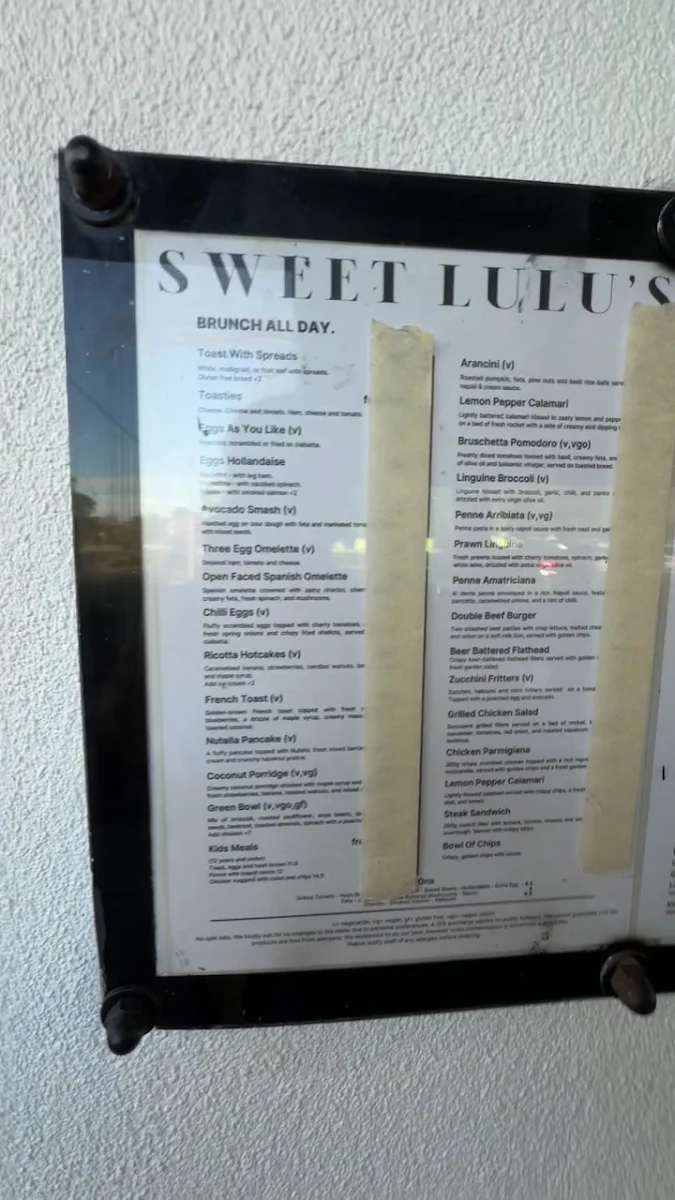 SWEET LULU'S
BRUNCH ALL DAY.
Toast With Spreads
White, multigrain, or fruit loaf with spreads.
Gluten free bread +2
Toasties
Cheese, Cheese and tomato, Ham, cheese and tomato.
Eggs As You Like (v)
Poached, scrambled or fried on ciabatta.
Eggs Hollandaise
- with leg ham.
- with sautéed spinach.
- with smoked salmon +2
Avocado Smash (v)
Poached egg on sour dough with feta and marinated
with mixed seeds.
Three Egg Omelette (v)
Smoked ham, tomato and cheese.
Open Faced Spanish Omelette
Spanish omelette crowned with spicy chorizo,
creamy feta, fresh spinach, and mushrooms.
Chilli Eggs (v)
Fluffy scrambled eggs topped with cherry tomatoes,
fresh spring onions and crispy fried shallots, served
ciabatta.
Ricotta Hotcakes (v)
Caramelised banana, strawberries, candied walnuts,
and maple syrup.
Add ice cream +2
French Toast (v)
Golden-brown French toast topped with fresh
blueberries, a drizzle of maple syrup, creamy
toasted coconut.
Nutella Pancake (v)
A fluffy pancake topped with Nutella, fresh mixed
cream and crunchy hazelnut praline.
Coconut Porridge (v,vg)
Creamy coconut porridge drizzled with maple syrup and
fresh strawberries, banana, toasted walnuts, and mixed
Green Bowl (v,vgo,gf)
Mix of broccoli, roasted cauliflower, soya beans,
seeds, beetroot, toasted almonds, spinach with a
Add chicken +7
Kids Meals
(12 years and under)
Toast, eggs and hash brown 11.5
Penne with napoli sauce 12
Chicken nuggets with salad and chips 14.5
Arancini (v)
Roasted pumpkin, feta, pine nuts and basil rice balls
napoli & cream sauce.
Lemon Pepper Calamari
Lightly battered calamari tossed in zesty lemon and
on a bed of fresh rocket with a side of creamy and dipping
Bruschetta Pomodoro (v,vgo)
Freshly diced tomatoes tossed with basil, creamy feta,
of olive oil and balsamic vinegar, served on toasted bread.
Linguine Broccoli (v)
Linguine tossed with broccoli, garlic, chilli, and
drizzled with extra virgin olive oil.
Penne Arribiata (v,vg)
Penne pasta in a spicy napoli sauce with fresh basil and
Prawn Linguine
Fresh prawns tossed with cherry tomatoes, spinach,
white wine, drizzled with extra virgin olive oil.
Penne Amatriciana
Al dente penne enveloped in a rich Napoli sauce,
pancetta, caramelised onions, and a hint of chilli.
Double Beef Burger
Two smashed beef patties with crisp lettuce, melted
and onion on a soft milk bun, served with golden chips.
Beer Battered Flathead
Crispy beer-battered flathead fillets served with golden
fresh garden salad.
Zucchini Fritters (v)
Zucchini, halloumi and corn fritters served on a
Topped with a poached egg and avocado.
Grilled Chicken Salad
Succulent grilled fillets served on a bed of rocket,
cucumber, tomatoes, red onion, and roasted capsicum
Chicken Parmigiana
300g crispy crumbed chicken topped with a rich
mozzarella, served with golden chips and a fresh garden
Lemon Pepper Calamari
Lightly floured calamari served with crispy chips, a fresh
and lemon.
Steak Sandwich
200g scotch fillet with lettuce, tomato, cheese and
sourdough. Served with crispy chips.
Bowl Of Chips
Crispy, golden chips with sauce.
Ons
Grilled Tomato
Extra Egg
v- vegetarian, vg- vegan, gf- gluten free, vgo- vegan option
products are free from allergens.
Please notify staff of any allergies before ordering